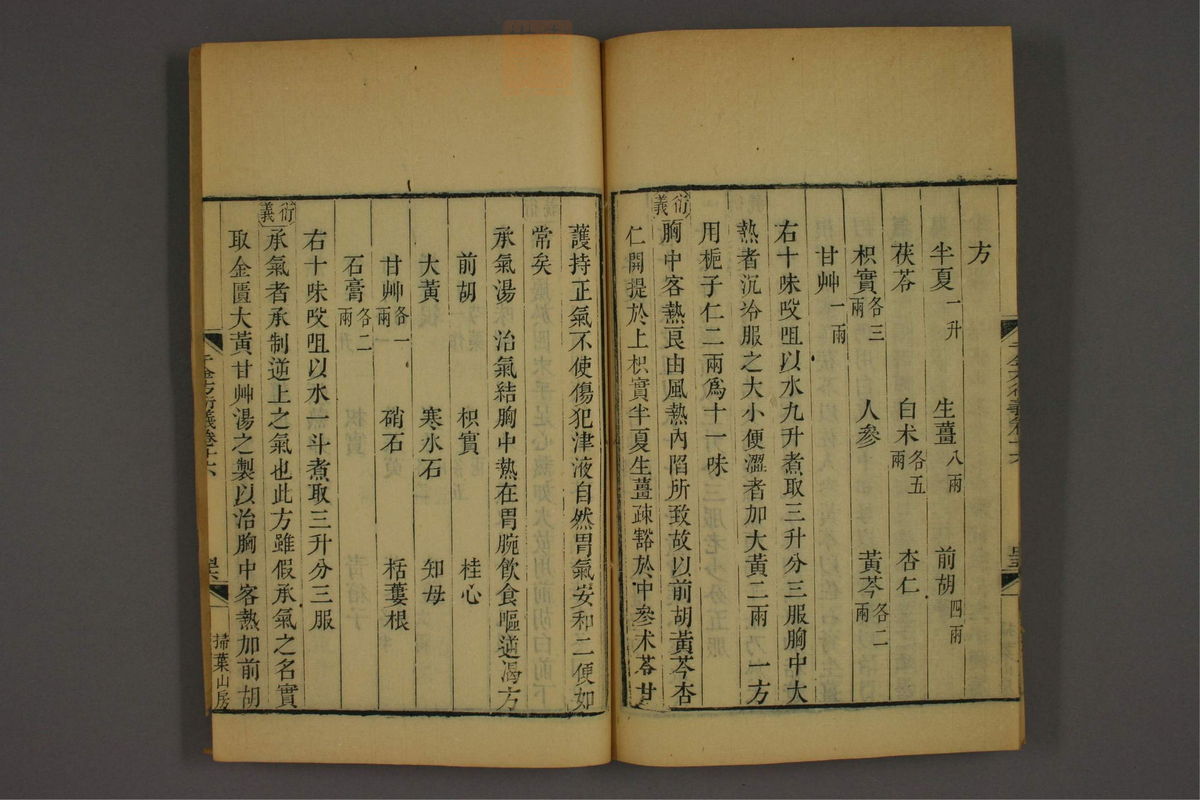 方
半夏一升 生薑八兩 前胡四兩
茯苓 白朮各五兩 杏仁
枳實各三兩 人參 黃芩各二兩
甘艸一兩
右十味㕮咀以水九升煮取三升分三服胸中大
熱者沉冷服之大小便澀者加大黃二兩 一方
用梔子仁二兩爲十一味
衍義 胸中客熱良由風熱內陷所致故以前胡黃芩杏
仁開提於上枳實半夏生薑疎豁於中參朮苓甘
護持正氣不使傷犯津液自然胃氣安和二便如
常矣
承氣湯 治氣結胸中熱在胃脘飲食嘔逆渴方
前胡 枳實 桂心
大黃 寒水石 知母
甘艸各一兩 硝石 栝蔞根
石膏各二兩
右十味㕮咀以水一斗煮取三升分三服
衍義 承氣者承制逆上之氣也此方雖假承氣之名實
取金匱大黃甘艸湯之製以治胸中客熱加前胡
千金方衍義卷十六
掃葉山房